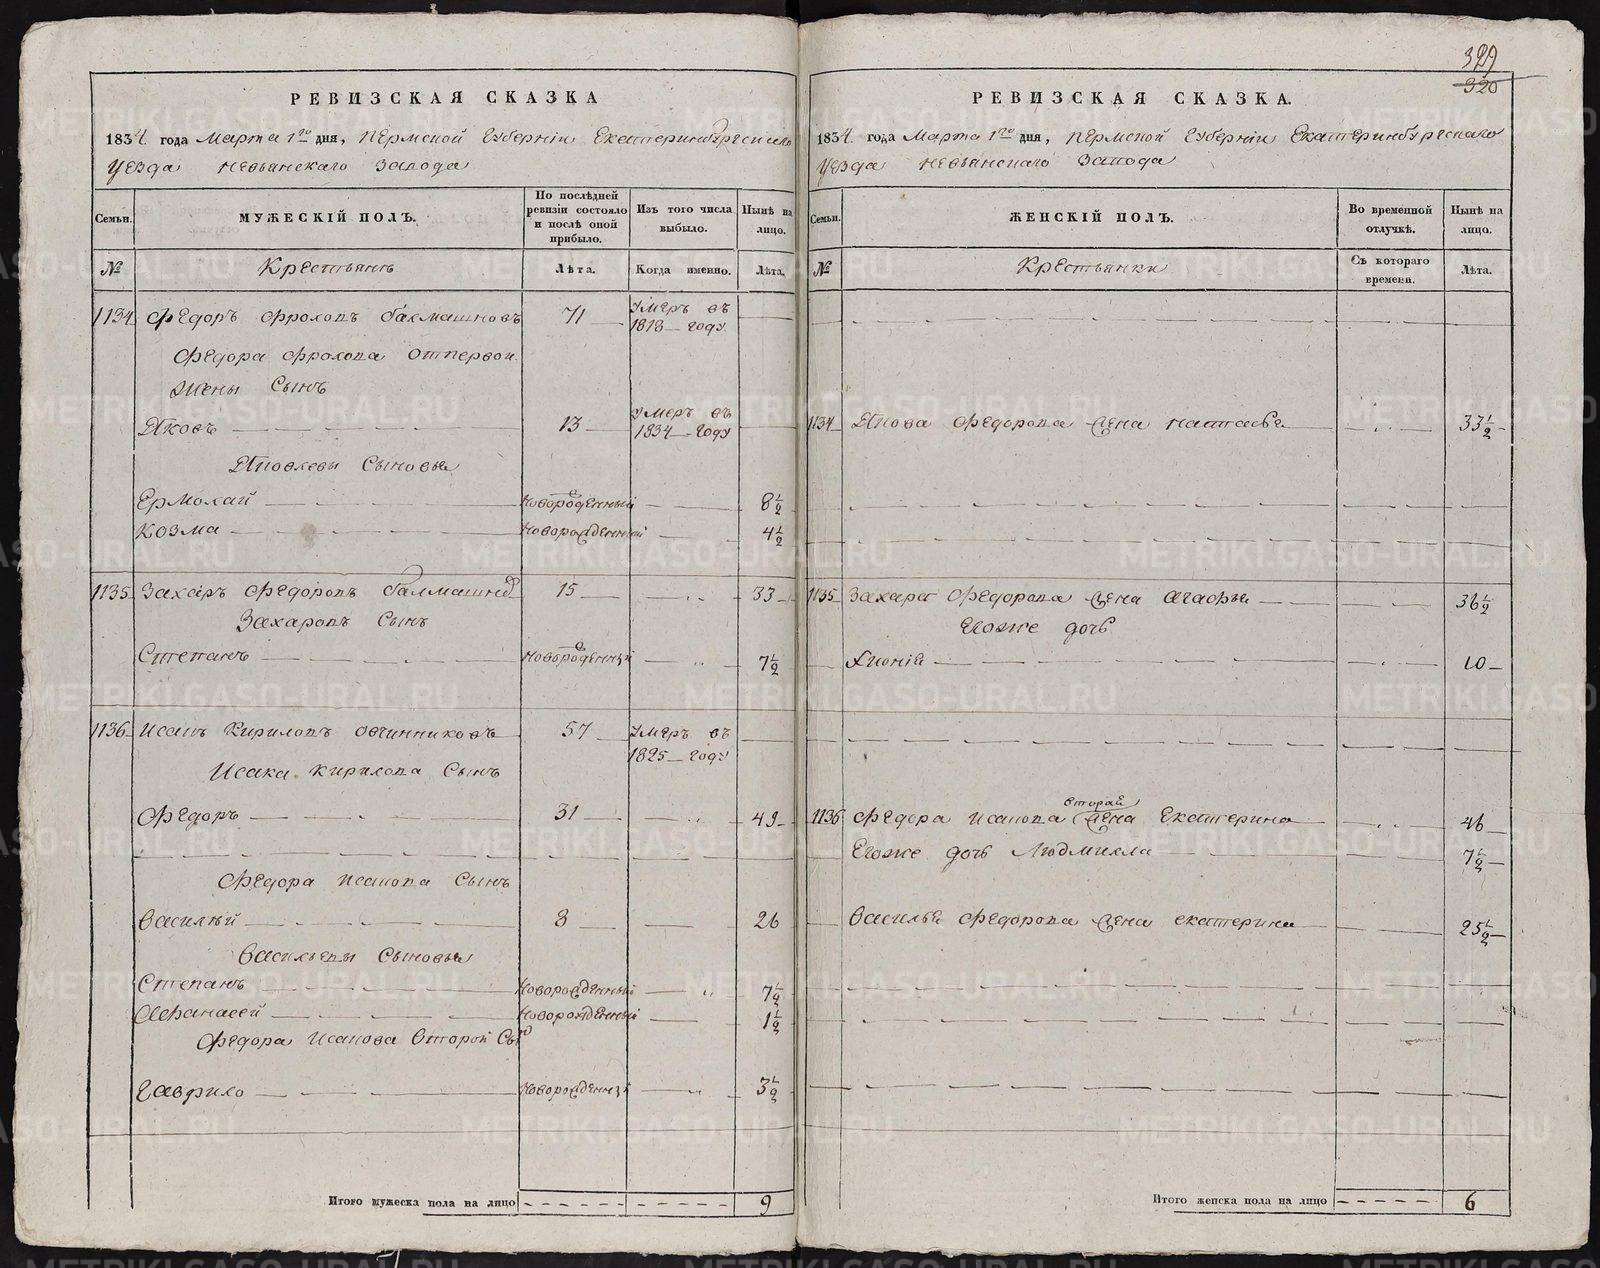 329
320
РЕВИЗСКАЯ СКАЗКА
1834 года Марта 1го дня, Пермской Губернiи Екатеринбургскаго
уезда Невьянскаго Завода
Семьи.
МУЖЕСКIЙ ПОЛЪ.
По послѣдней ревизiи состояло и послѣ оной прибыло.
Изъ того числа выбыло.
Нынѣ на лицо.
№
Крестьянъ
Лѣта.
Когда именно.
Лѣта.
1134 Федоръ Фроловъ Балмашновъ 71 Умеръ въ 1818 году
Федора Фролова отпервой
жены Сынъ
Яковъ 13 Умеръ въ 1834 году
Яковлевы Сыновья
Ермолай Новорожденный 8½
Козма Новорожденный 4½
1135 Захаръ Федоровъ Балмашновъ 15 33
Захаровъ Сынъ
Степанъ Новорожденный 7½
1136 Исакъ Кириловъ Овчинниковъ 57 Умеръ въ 1825 году
Исака Кирилова Сынъ
Федоръ 31 49
Федора Исакова Сынъ
Василiй 8 26
Васильевы Сыновья
Степанъ Новорожденный 7½
Афанасей Новорожденный 1½
Федора Исакова второй Сынъ
Гаврило Новорожденный 3½
Итого мужеска пола на лицо 9
РЕВИЗСКАЯ СКАЗКА.
1834 года Марта 1го дня, Пермской Губернiи Екатеринбургскаго
уезда Невьянскаго Завода
Семьи.
ЖЕНСКIЙ ПОЛЪ.
Во временной отлучкѣ.
Нынѣ на лицо.
№
Крестьянки
Съ котораго времени.
Лѣта.
1134 Якова Федорова жена Наталья 33½
1135 Захара Федорова жена Агафья 36½
Егоже дочь
Хионiя 10
1136 Федора Исакова вторая жена Екатерина 46
Егоже дочь Людмила 7½
Василья Федорова жена Екатерина 25½
Итого женска пола на лицо 6
METRIKI.GASO-URAL.RU